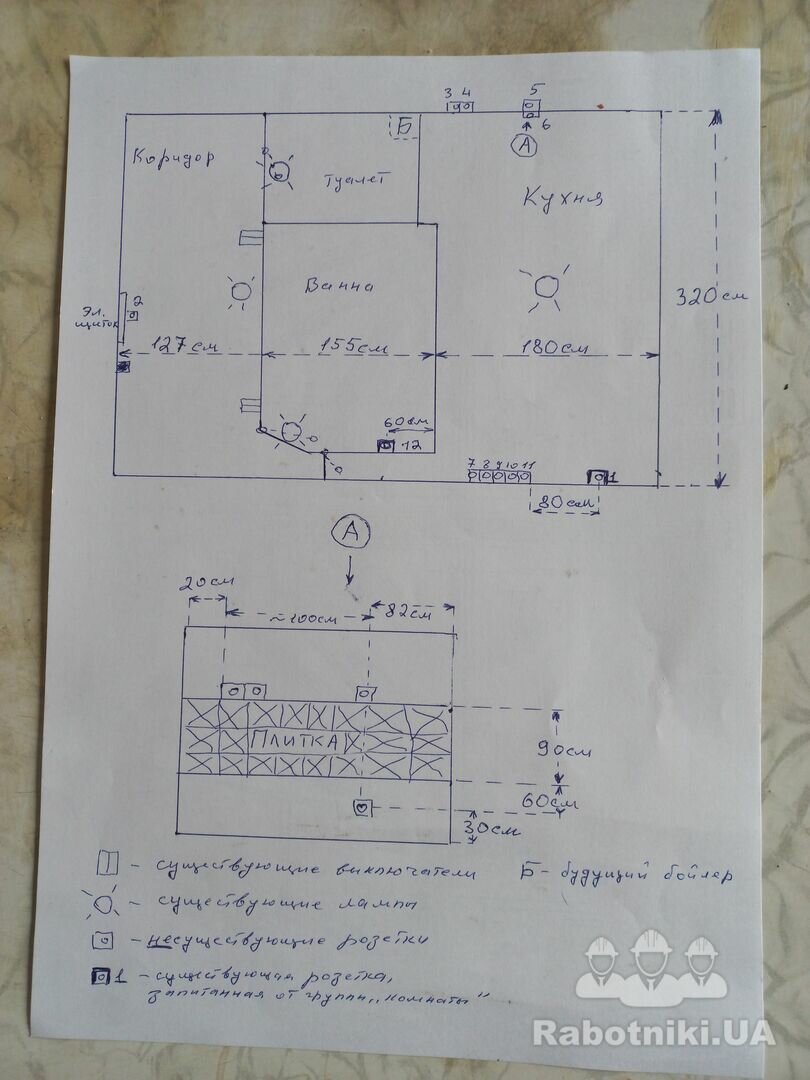 3 4
5
6
А
Б
Коридор
Туалет
Кухня
Ванна
Эл. 2
щиток
320см
127см
155см
180см
60см
12
7 8 9 10 11
1
80см
А
20см
~100см
82см
ПЛИТКА
90см
60см
30см
- существующие выключатели
Б - будущий бойлер
- существующие лампы
- несуществующие розетки
1 - существующая розетка,
запитанная от группы „комнаты"
Rabotniki.UA